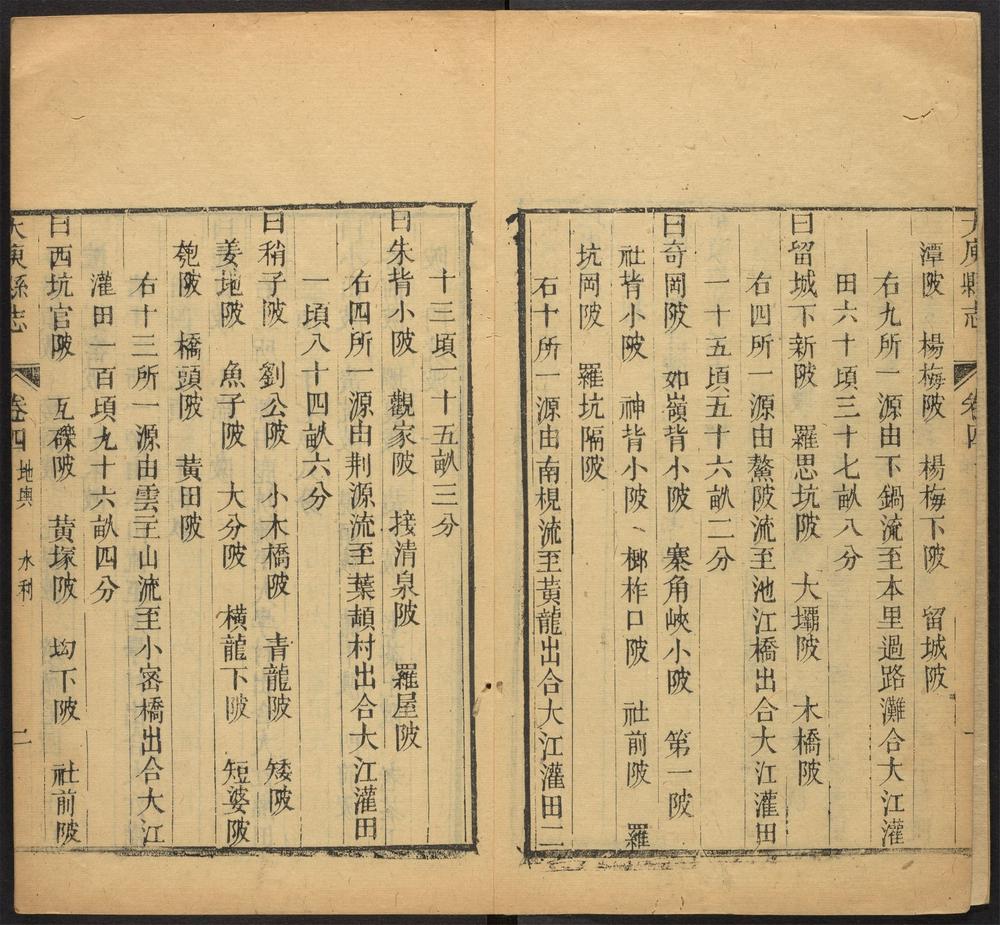 大庾縣志
卷四
潭陂　楊梅陂　楊梅下陂　留城陂
右九所一源由下鍋流至本里過路灘合大江灌
田六十頃三十七畝八分
曰留城下新陂　羅思坑陂　大壩陂　木橋陂
右四所一源由鰲陂流至池江橋出合大江灌田
一十五頃五十六畝二分
曰奇岡陂　如嶺背小陂　寨角峽小陂　第一陂
社背小陂　神背小陂　榔柞口陂　社前陂　羅
坑岡陂　羅坑隔陂
右十所一源由南梘流至黃龍出合大江灌田二
十三頃一十五畝三分
曰朱背小陂　觀家陂　接清泉陂　羅屋陂
右四所一源由荆源流至葉頡村出合大江灌田
一頃八十四畝六分
曰稍子陂　劉公陂　小木橋陂　青龍陂　矮陂
姜地陂　魚子陂　大分陂　橫龍下陂　短婆陂
匏陂　橋頭陂　黃田陂
右十三所一源由雲王山流至小密橋出合大江
灌田一百頃九十六畝四分
曰西坑官陂　瓦礫陂　黃塚陂　坳下陂　社前陂
大庾縣志
卷四　地輿　水利　二